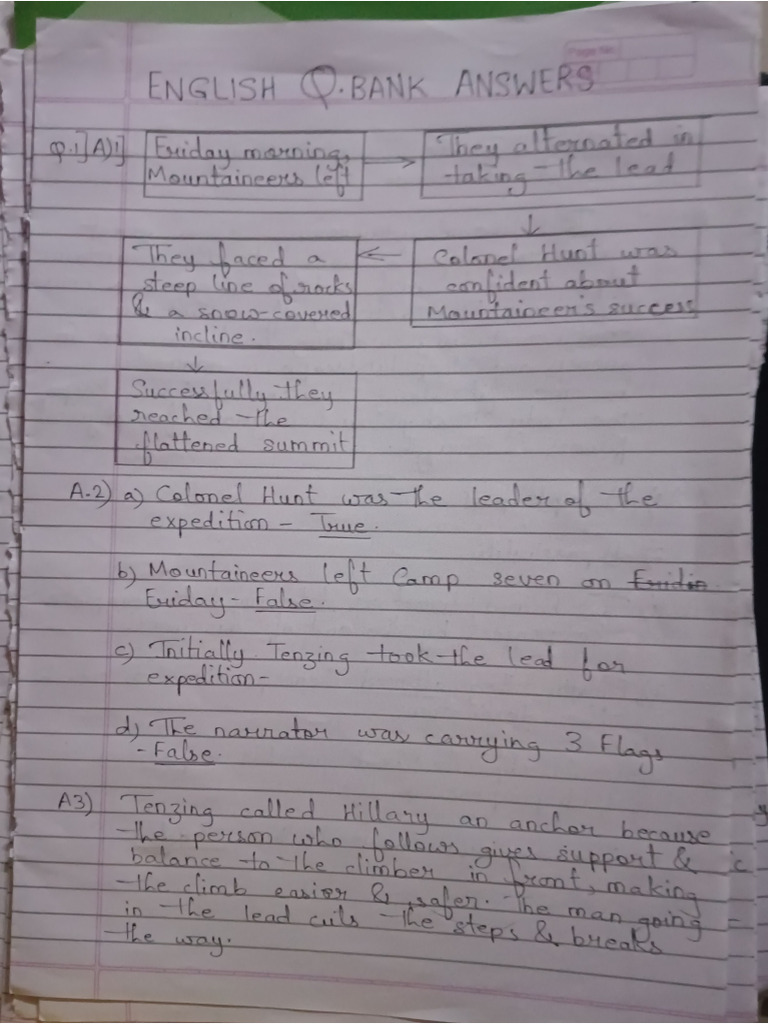 Page No.
ENGLISH Q.BANK ANSWERS
Q.1]A)1] Friday morning, Mountaineers left → They alternated in taking the lead
↓
They faced a steep line of rocks & a snow-covered incline. ← Colonel Hunt was confident about Mountaineer's success
↓
Successfully they
reached the
flattened summit
A.2) a) Colonel Hunt was the leader of the
expedition - True.
b) Mountaineers left Camp seven on
Friday - False.
c) Initially Tenzing took the lead for
expedition-
d) The narrator was carrying 3 Flags
- False.
A3) Tenzing called Hillary an anchor because
the person who follows gives support &
balance to the climber in front, making
the climb easier & safer. The man going
in the lead cuts the steps & breaks
the way.